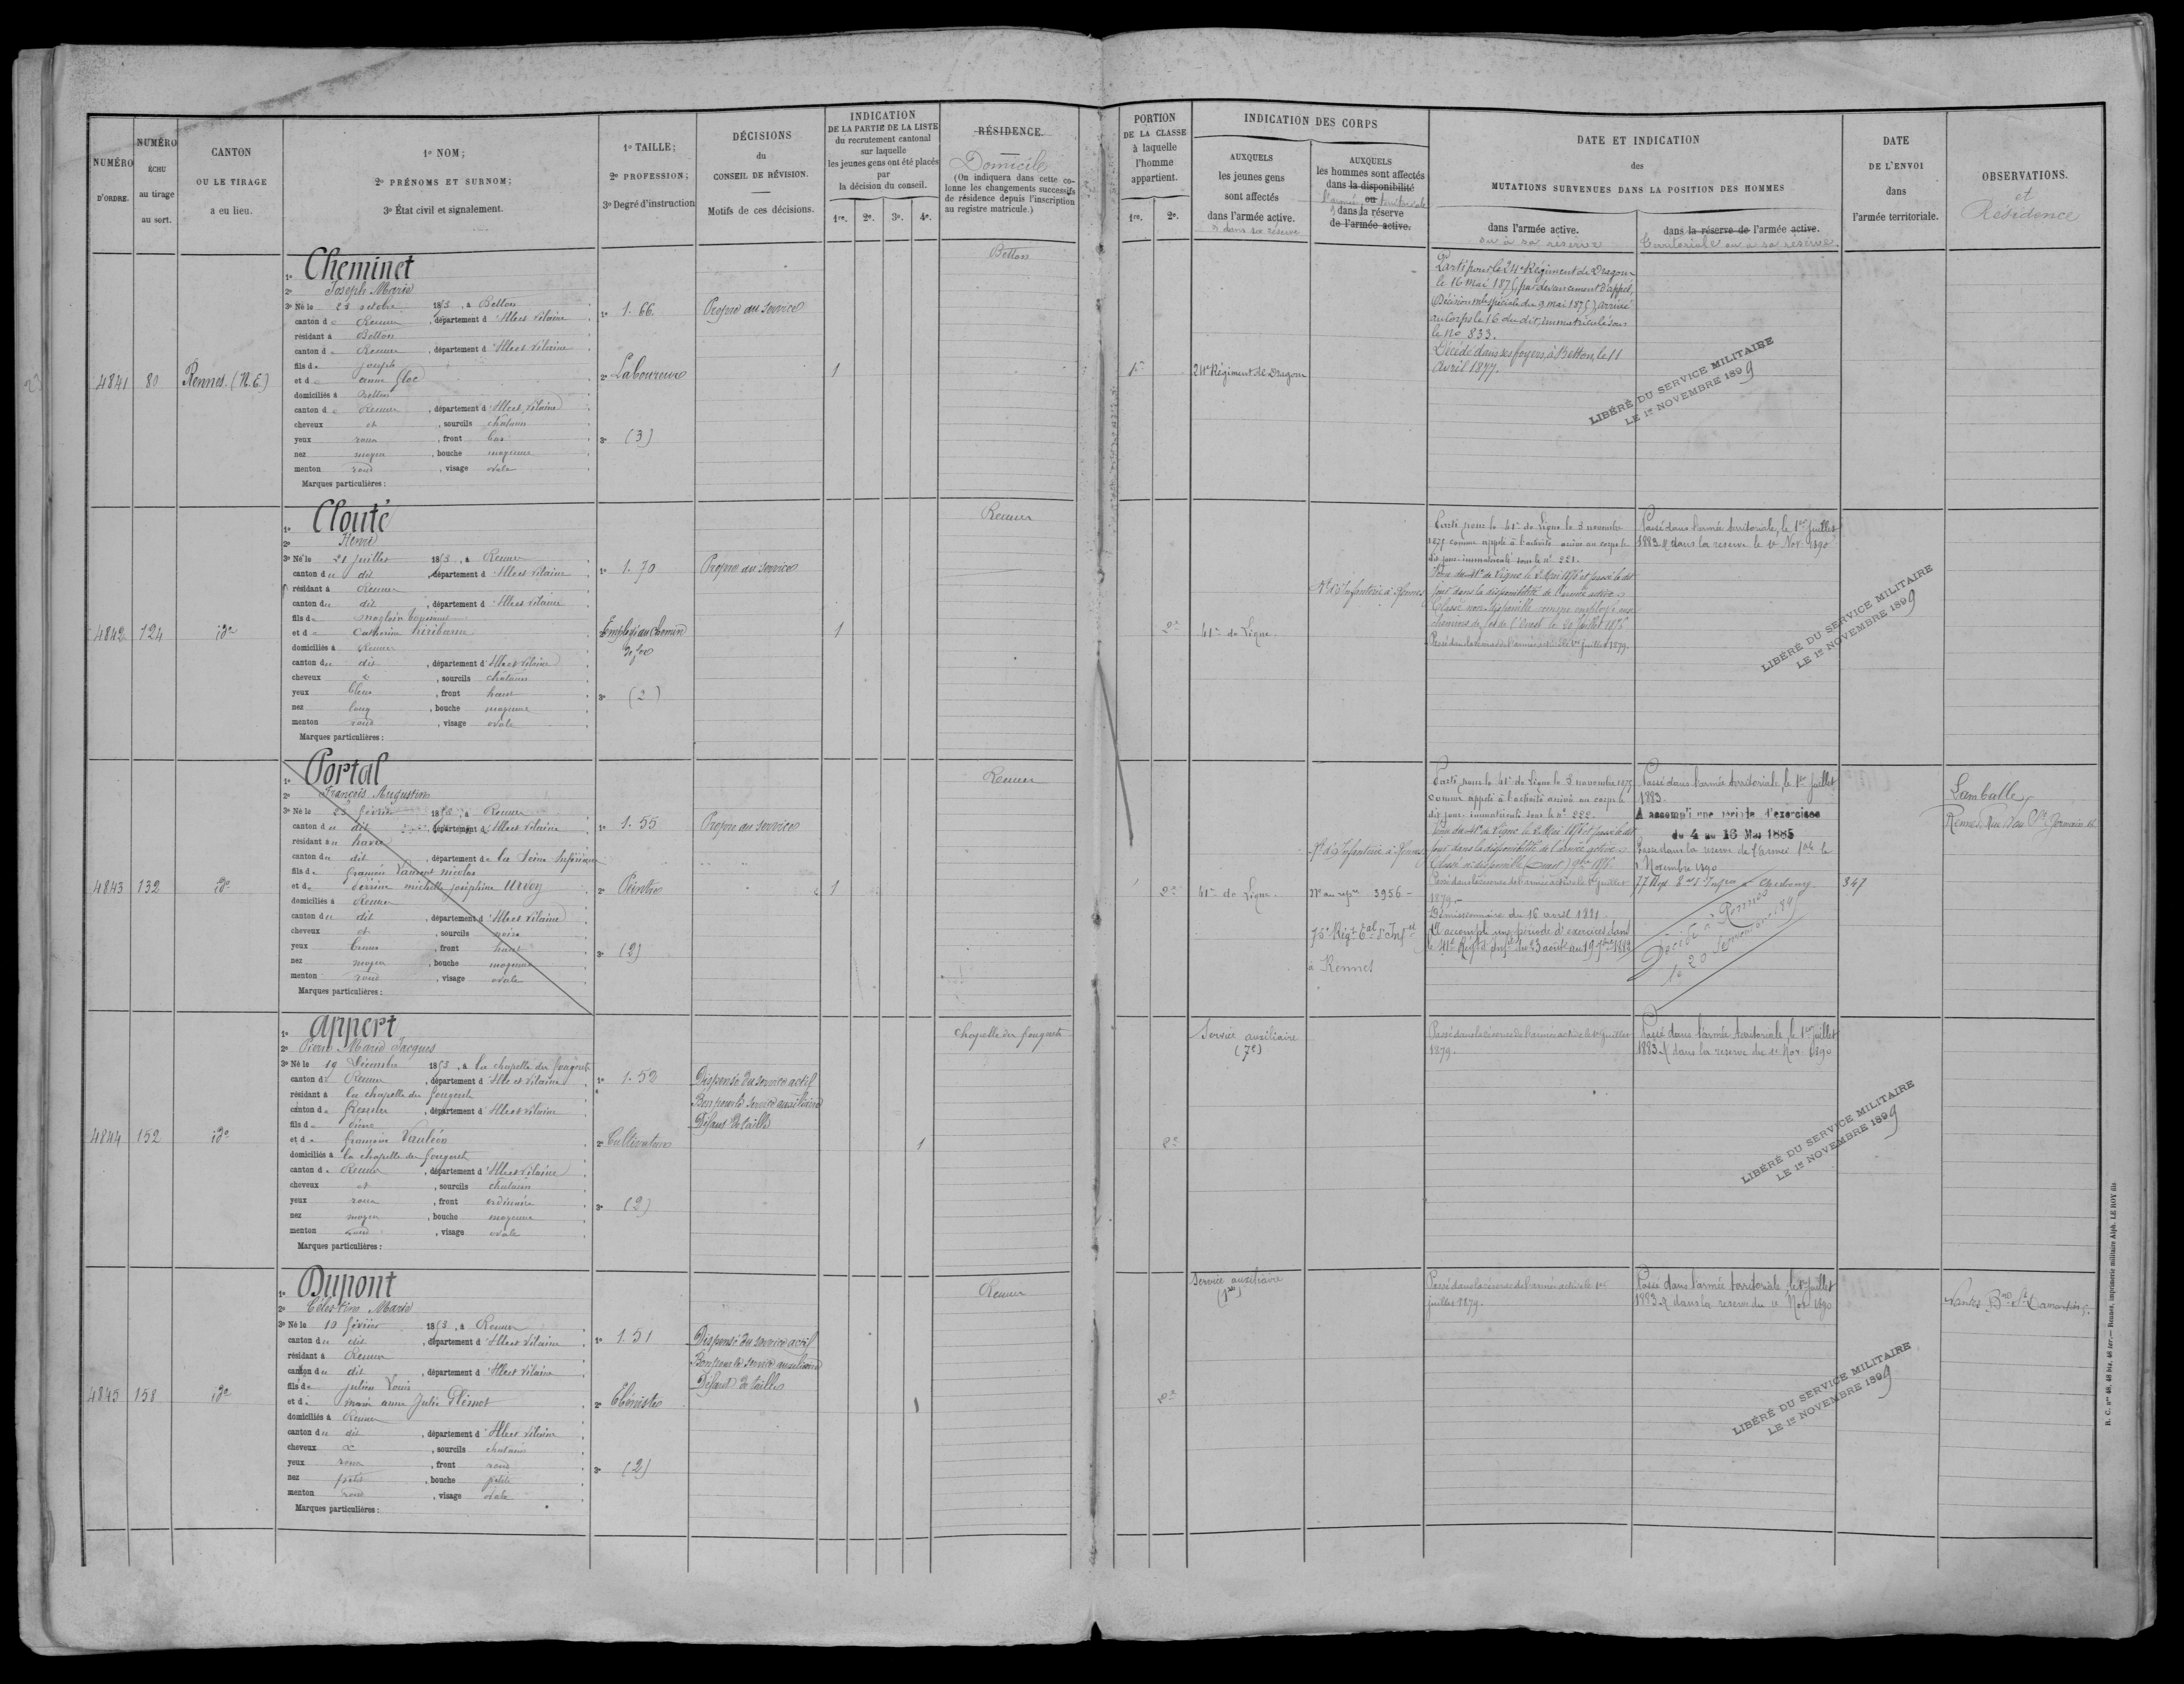 NUMÉRO D'ORDRE.
NUMÉRO ÉCHU au tirage au sort.
CANTON OU LE TIRAGE a eu lieu.
1º NOM;
2º PRÉNOMS ET SURNOM;
3º État civil et signalement.
1º TAILLE;
2º PROFESSION;
3º Degré d'instruction
DÉCISIONS
du
CONSEIL DE RÉVISION.
Motifs de ces décisions.
INDICATION
DE LA PARTIE DE LA LISTE
du recrutement cantonal
sur laquelle
les jeunes gens ont été placés
par
la décision du conseil.
1re. 2e. 3e. 4e.
RÉSIDENCE.
Domicile
(On indiquera dans cette co-
lonne les changements successifs
de résidence depuis l'inscription
au registre matricule.)
PORTION
DE LA CLASSE
à laquelle
l'homme
appartient.
1re. 2e.
INDICATION DES CORPS
AUXQUELS
les jeunes gens
sont affectés
dans l'armée active.
& dans sa réserve
AUXQUELS
les hommes sont affectés
dans la disponibilité
ou
l'armée territoriale
& dans la réserve
de l'armée active.
DATE ET INDICATION
des
MUTATIONS SURVENUES DANS LA POSITION DES HOMMES
dans l'armée active.
ou à sa réserve
dans la réserve de l'armée active.
territoriale ou à sa réserve.
DATE
DE L'ENVOI
dans
l'armée territoriale.
OBSERVATIONS.
et
Résidence
4841 80 Rennes. (N.E.)
1º Cheminet
2º Joseph Marie
3º Né le 25 octobre 1853, à Betton
canton de Rennes, département d'Ille et Vilaine
résidant à Betton
canton de Rennes, département d'Ille et Vilaine
fils de Joseph
et de Anne
domiciliés à Betton
canton de Rennes, département d'Ille et Vilaine
cheveux et, sourcils châtains
yeux roux, front bas
nez moyen, bouche moyenne
menton rond, visage ovale
Marques particulières :
1º 1.66.
2º Laboureur
3º (3)
Propre au service
1
Betton
1re
24e Régiment de Dragons
Parti pour le 24e Régiment de Dragons
le 16 mai 1875, par devancement d'appel,
(Décision mlle spéciale du 9 mai 1875) arrivé
au Corps le 16 du dit, immatriculé sous
le No 833.
Décédé dans ses foyers, à Betton, le 11
Avril 1877.
LIBÉRÉ DU SERVICE MILITAIRE
LE 1er NOVEMBRE 1899
4842 124 idm
1º Clouté
2º Henri
3º Né le 21 juillet 1853, à Rennes
canton du dit, département d'Ille et Vilaine
résidant à Rennes
canton du dit, département d'Ille et Vilaine
fils de
et de Catherine
domiciliés à Rennes
canton du dit, département d'Ille et Vilaine
cheveux &, sourcils châtains
yeux bleus, front haut
nez long, bouche moyenne
menton rond, visage ovale
Marques particulières :
1º 1.70
2º Employé au chemin
de fer
3º (2)
Propre au service
1
Rennes
2e
41e de Ligne.
Rt d'Infanterie à Rennes
Parti pour le 41e de Ligne le 3 novembre
1875 comme appelé à l'activité arrivé au corps le
dit jour immatriculé sous le no 221.
Classé non-disponible comme employé aux
chemins de fer de l'Ouest le 20 juillet 1876
Passé dans la réserve de l'armée active le 1er juillet 1879.
Passé dans l'armée territoriale, le 1er Juillet
1883. & dans la réserve le 1er Nov. 1890
LIBÉRÉ DU SERVICE MILITAIRE
LE 1er NOVEMBRE 1899
4843 132 idm
1º Portal
2º François Augustin
3º Né le 23 février 1853, à Rennes
canton du dit, département d'Ille et Vilaine
résidant au havre
canton du dit, département de la Seine Inférieure
fils de François Laurent Nicolas
et de Perrine Michelle Joséphine Urvoy
domiciliés à Rennes
canton du dit, département d'Ille et Vilaine
cheveux et, sourcils noirs
yeux bruns, front haut
nez moyen, bouche moyenne
menton rond, visage ovale
Marques particulières :
1º 1.55
2º Peintre
3º (2)
Propre au service
1
Rennes
2e
41e de Ligne.
Rt d'Infanterie à Rennes
No au rep. 3956
75e Régt tal d'Infie
à Rennes
Parti pour le 41e de Ligne le 3 novembre 1875
comme appelé à l'activité arrivé au corps le
dit jour immatriculé sous le no 222.
jour dans la disponibilité de l'armée active.
Passé dans la réserve de l'armée active le 1er juillet
1879.
Démissionnaire du 16 avril 1881
A accompli une période d'exercices dans
le 41e Régt d'Infie du 23 août au 19 7bre 1882
Passé dans l'armée territoriale, le 1er Juillet
1883.
A accompli une période d'exercices
du 4 au 16 Mai 1885
Passé dans la réserve de l'armée tale le
1 Novembre 1890
Décédé à Rennes
le 20
347
Lamballe
Rennes, Rue St Germain
4844 152 idm
1º Appert
2º Pierre Marie Jacques
3º Né le 19 Décembre 1853, à la chapelle des fougeretz
canton de Rennes, département d'Ille et Vilaine
résidant à la chapelle des fougeretz
canton de Rennes, département d'Ille et Vilaine
fils de Pierre
et de Françoise Vauléon
domiciliés à la chapelle des fougeretz
canton de Rennes, département d'Ille et Vilaine
cheveux et, sourcils châtains
yeux roux, front ordinaire
nez moyen, bouche moyenne
menton rond, visage ovale
Marques particulières :
1º 1.52
2º Cultivateur
3º (2)
Dispensé du service actif
Bon pour le service auxiliaire
Défaut de taille
1
Chapelle des fougeretz
2e
Service auxiliaire
(7e)
Passé dans la réserve de l'armée active le 1er Juillet
1879.
Passé dans l'armée territoriale, le 1er Juillet
1883. & dans la réserve du 1er Nov. 1890
LIBÉRÉ DU SERVICE MILITAIRE
LE 1er NOVEMBRE 1899
4845 158 idm
1º Dupont
2º Célestin Marie
3º Né le 10 février 1853, à Rennes
canton du dit, département d'Ille et Vilaine
résidant à Rennes
canton du dit, département d'Ille et Vilaine
fils de Julien Louis
et de Marie Anne Julie
domiciliés à Rennes
canton du dit, département d'Ille et Vilaine
cheveux &, sourcils châtains
yeux roux, front rond
nez petit, bouche petite
menton rond, visage ovale
Marques particulières :
1º 1.51
2º Ebéniste
3º (2)
Dispensé du service actif
Bon pour le service auxiliaire
Défaut de taille
1
Rennes
2e
Service auxiliaire
Passé dans la réserve de l'armée active le 1er
juillet 1879.
Passé dans l'armée territoriale, le 1er Juillet
1883. & dans la réserve du 1er Nov. 1890
LIBÉRÉ DU SERVICE MILITAIRE
LE 1er NOVEMBRE 1899
R. C. nos 46, 48 bis, 48 ter.— Rennes, imprimerie militaire Alph. LE ROY fils